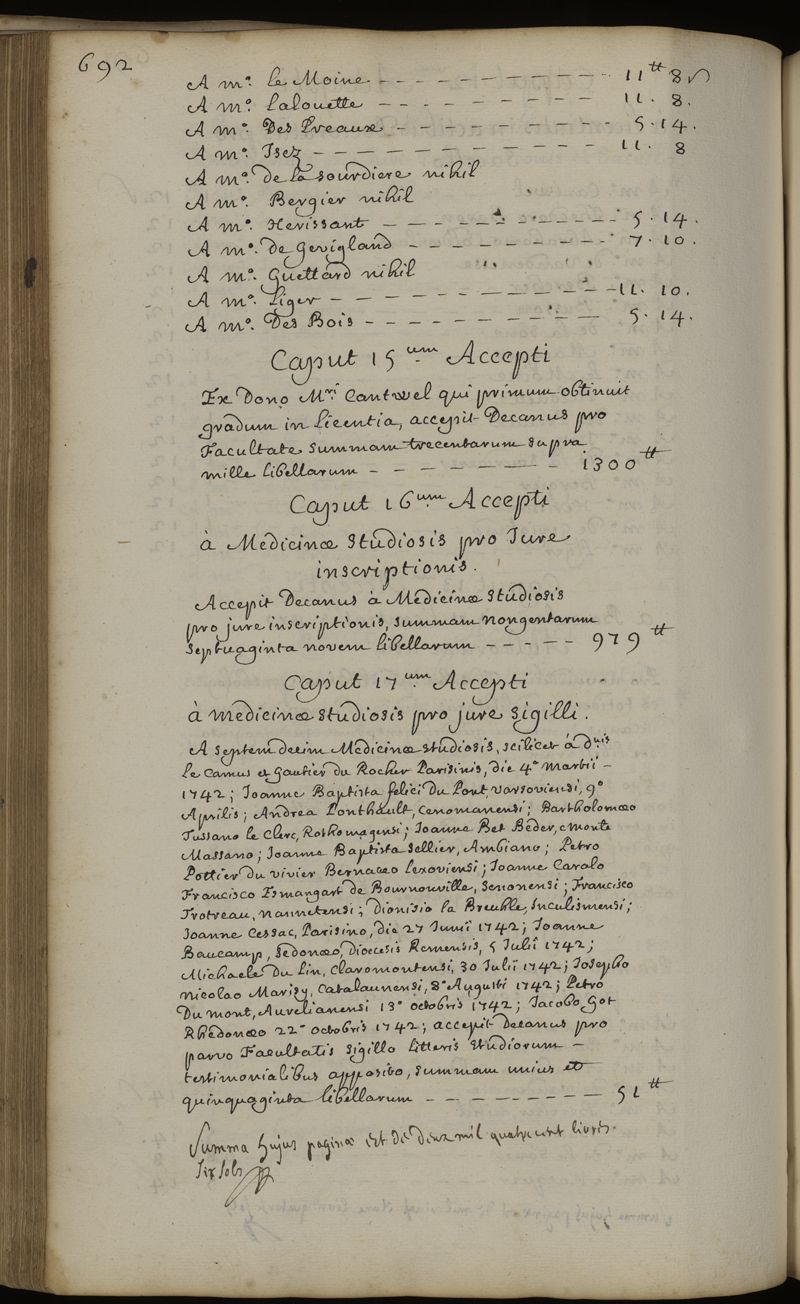 692
A mo. le Moine - - - - - - - - - - - 11tt 8s
A mo. Lalouette - - - - - - - - - 11. 8.
A mo. Des Preaux - - - - - - - - - 5. 14.
A mo. Isez - - - - - - - - - - - 11. 8
A mo. de la sourdiere nihil
A mo. Bergier nihil
A mo. Herissant - - - - - - - - - - 5. 14.
A mo. de gevigland - - - - - - - - - 7. 10.
A mo. Guettard nihil
A mo. Liger - - - - - - - - - - - - 11. 10.
A mo. Des Bois - - - - - - - - - - 5. 14.
Caput 15um Accepti
Ex Dono Mri Cantwel qui primum obtinuit
gradum in licentia, accepit Decanus pro
Facultate summam trecentarum supra
mille libellarum - - - - - - - - 1300tt
Caput 16um Accepti
à Medicinæ studiosis pro Jure
inscriptionis.
Accepit Decanus à Medicinæ studiosis
pro jure inscriptionis, summam nongentarum
septuaginta novem libellarum - - - - - 979tt
Caput 17um Accepti
à medicinæ studiosis pro jure sigilli.
A septemdecim Medicinæ studiosis, scilicet à dnis
Le Camus et gautier du Rocher Parisinis, die 4a martii -
1742; Joanne Baptista felici Du Pont, varsoviensi, 9o
Aprilis; Andrea Ponthault, Cenomanensi; Bartholomæo
Tussano le Clerc, Rothomagensi; Joanne Bet Beder, e monte
Massano; Joanne Baptista sellier, Ambiano; Petro
Pottier du vivier Bernaæo Lexoviensi; Joanne Carolo
Francisco Esmangart de Bournonville, senonensi; Francisco
Trotreau, nannetensi; Dionisio la Breuhle, Inculismensi;
Joanne Cessac, Parisino, die 27 Junii 1742; Joanne
Baucamp, sedonæo, Dioecesis Remensis, 5 Julii 1742;
Michaele Du Pin, Claromontensi, 30 Julii 1742; Josepho
Nicolao Marisy, Catalaunensi, 8a Augusti 1742; Petro
Du mont, Aurelianensi 13a octobris 1742; Jacobo got
Rhedonæo 22a octobris 1742; accepit decanus pro
parvo Facultatis sigillo litteris studiorum -
testimonialibus apposito, summam unius et
quinquaginta libellarum - - - - - - - - 51tt
Summa hujus paginæ est de deux mil quatre cent livres
six sols